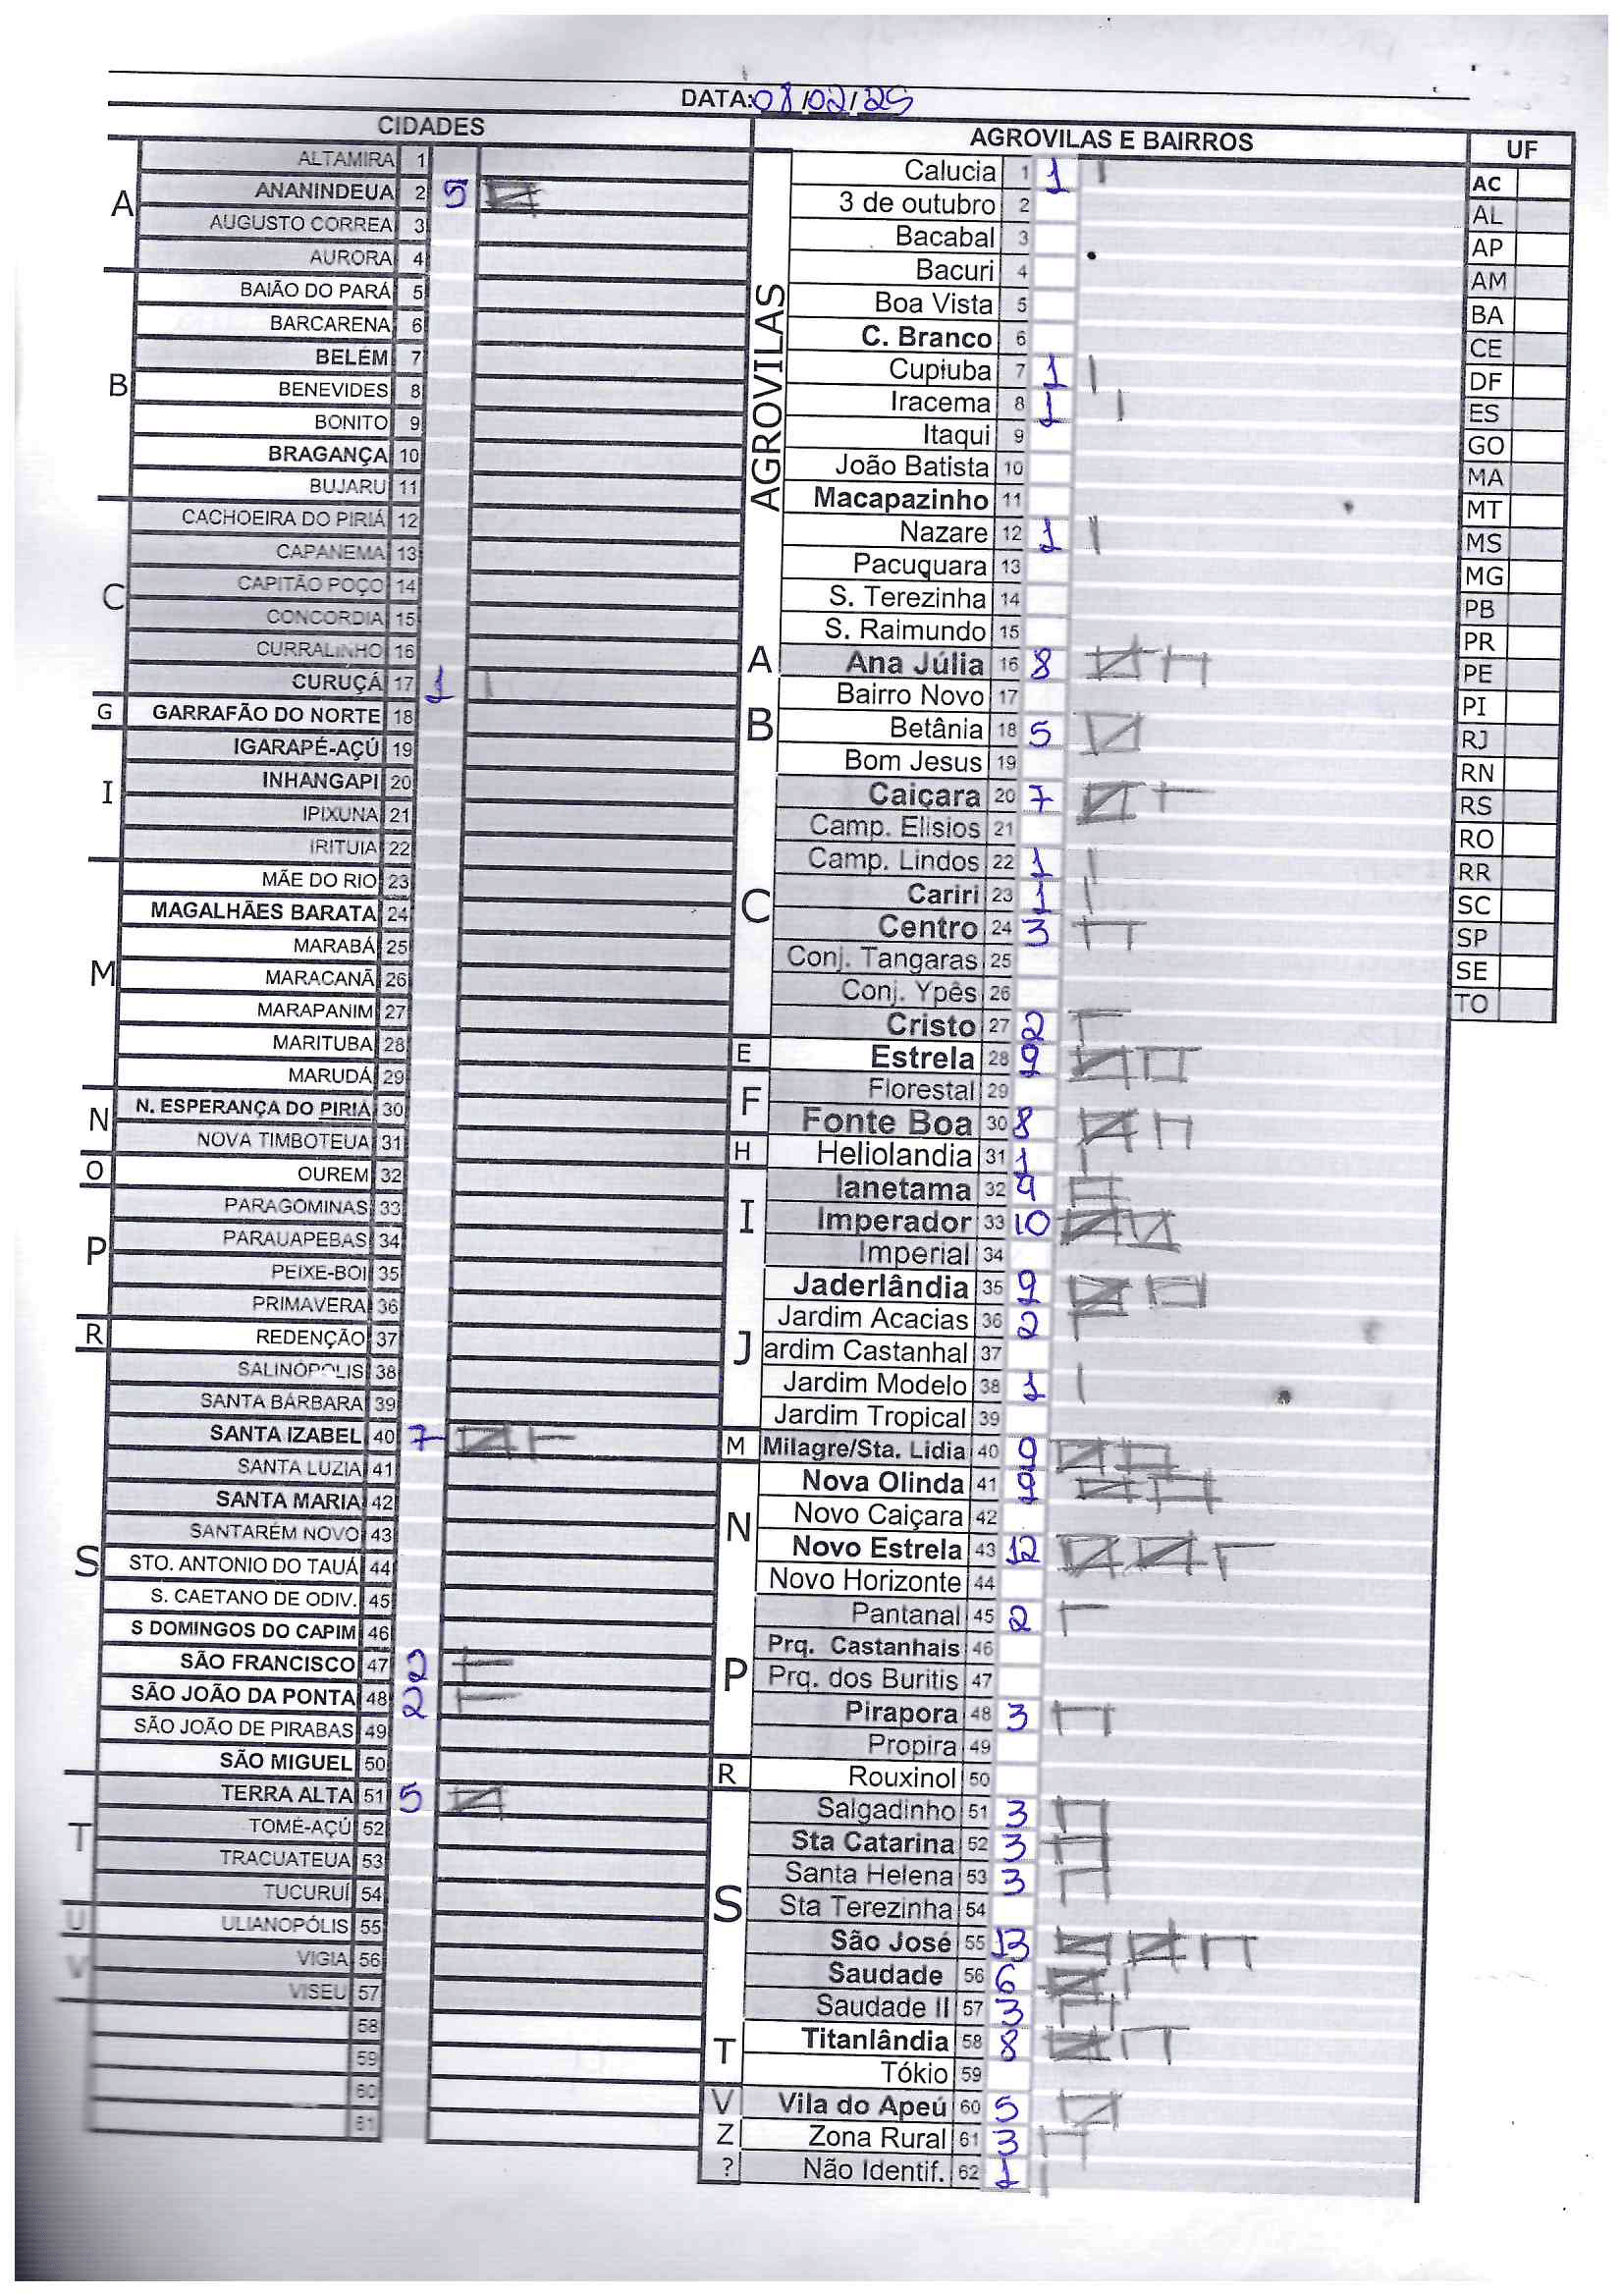 DATA: 08/02/25
CIDADES
A
ALTAMIRA 1
ANANINDEUA 2 5
AUGUSTO CORREA 3
AURORA 4
B
BAIÃO DO PARÁ 5
BARCARENA 6
BELÉM 7
BENEVIDES 8
BONITO 9
BRAGANÇA 10
BUJARU 11
C
CACHOEIRA DO PIRIÁ 12
CAPANEMA 13
CAPITÃO POÇO 14
CONCORDIA 15
CURRALINHO 16
CURUÇÁ 17 1
G
GARRAFÃO DO NORTE 18
I
IGARAPÉ-AÇÚ 19
INHANGAPI 20
IPIXUNA 21
IRITUIA 22
M
MÃE DO RIO 23
MAGALHÃES BARATA 24
MARABÁ 25
MARACANÃ 26
MARAPANIM 27
MARITUBA 28
MARUDÁ 29
N
N. ESPERANÇA DO PIRIÁ 30
NOVA TIMBOTEUA 31
O
OUREM 32
P
PARAGOMINAS 33
PARAUAPEBAS 34
PEIXE-BOI 35
PRIMAVERA 36
R
REDENÇÃO 37
S
SALINÓPOLIS 38
SANTA BÁRBARA 39
SANTA IZABEL 40 7
SANTA LUZIA 41
SANTA MARIA 42
SANTARÉM NOVO 43
STO. ANTONIO DO TAUÁ 44
S. CAETANO DE ODIV. 45
S DOMINGOS DO CAPIM 46
SÃO FRANCISCO 47 2
SÃO JOÃO DA PONTA 48 2
SÃO JOÃO DE PIRABAS 49
SÃO MIGUEL 50
T
TERRA ALTA 51 5
TOMÉ-AÇÚ 52
TRACUATEUA 53
TUCURUÍ 54
U
ULIANOPÓLIS 55
V
VIGIA 56
VISEU 57
58
59
60
61
AGROVILAS E BAIRROS
AGROVILAS
Calucia 1 1
3 de outubro 2
Bacabal 3
Bacuri 4
Boa Vista 5
C. Branco 6
Cupiuba 7 1
Iracema 8 1
Itaqui 9
João Batista 10
Macapazinho 11
Nazare 12 1
Pacuquara 13
S. Terezinha 14
S. Raimundo 15
A
Ana Júlia 16 8
B
Bairro Novo 17
Betânia 18 5
Bom Jesus 19
C
Caiçara 20 7
Camp. Elisios 21
Camp. Lindos 22 1
Cariri 23 1
Centro 24 3
Conj. Tangaras 25
Conj. Ypês 26
Cristo 27 2
E
Estrela 28 9
F
Florestal 29
Fonte Boa 30 8
H
Heliolandia 31 1
I
Ianetama 32 4
Imperador 33 10
Imperial 34
J
Jaderlândia 35 9
Jardim Acacias 36 2
ardim Castanhal 37
Jardim Modelo 38 1
Jardim Tropical 39
M
Milagre/Sta. Lidia 40 9
N
Nova Olinda 41 9
Novo Caiçara 42
Novo Estrela 43 12
Novo Horizonte 44
P
Pantanal 45 2
Prq. Castanhais 46
Prq. dos Buritis 47
Pirapora 48 3
Propira 49
R
Rouxinol 50
S
Salgadinho 51 3
Sta Catarina 52 3
Santa Helena 53 3
Sta Terezinha 54
São José 55 13
Saudade 56 6
Saudade II 57 3
T
Titanlândia 58 8
Tókio 59
V
Vila do Apeú 60 5
Z
Zona Rural 61 3
?
Não Identif. 62 1
UF
AC
AL
AP
AM
BA
CE
DF
ES
GO
MA
MT
MS
MG
PB
PR
PE
PI
RJ
RN
RS
RO
RR
SC
SP
SE
TO